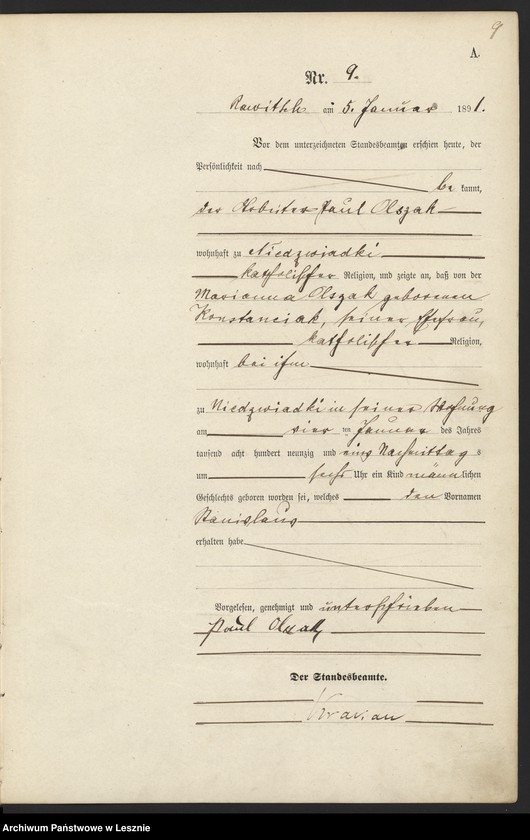 9
A.
Nr. 9.
Rawitsch am 5. Januar 1891.
Vor dem unterzeichneten Standesbeamten erschien heute, der
Persönlichkeit nach
be kannt,
der Arbeiter Paul Olszak
wohnhaft zu Niedzwiadki
katholischer Religion, und zeigte an, daß von der
Marianna Olszak geborenen
Konstanciak, seiner Ehefrau,
katholischer Religion,
wohnhaft bei ihm
zu Niedzwiadki in seiner Wohnung
am vier ten Januar des Jahres
tausend acht hundert neunzig und eins Nachmittags
um sechs Uhr ein Kind männlichen
Geschlechts geboren worden sei, welches den Vornamen
Stanislaus
erhalten habe
Vorgelesen, genehmigt und unterschrieben
Paul Olszak
Der Standesbeamte.
Archiwum Państwowe w Lesznie